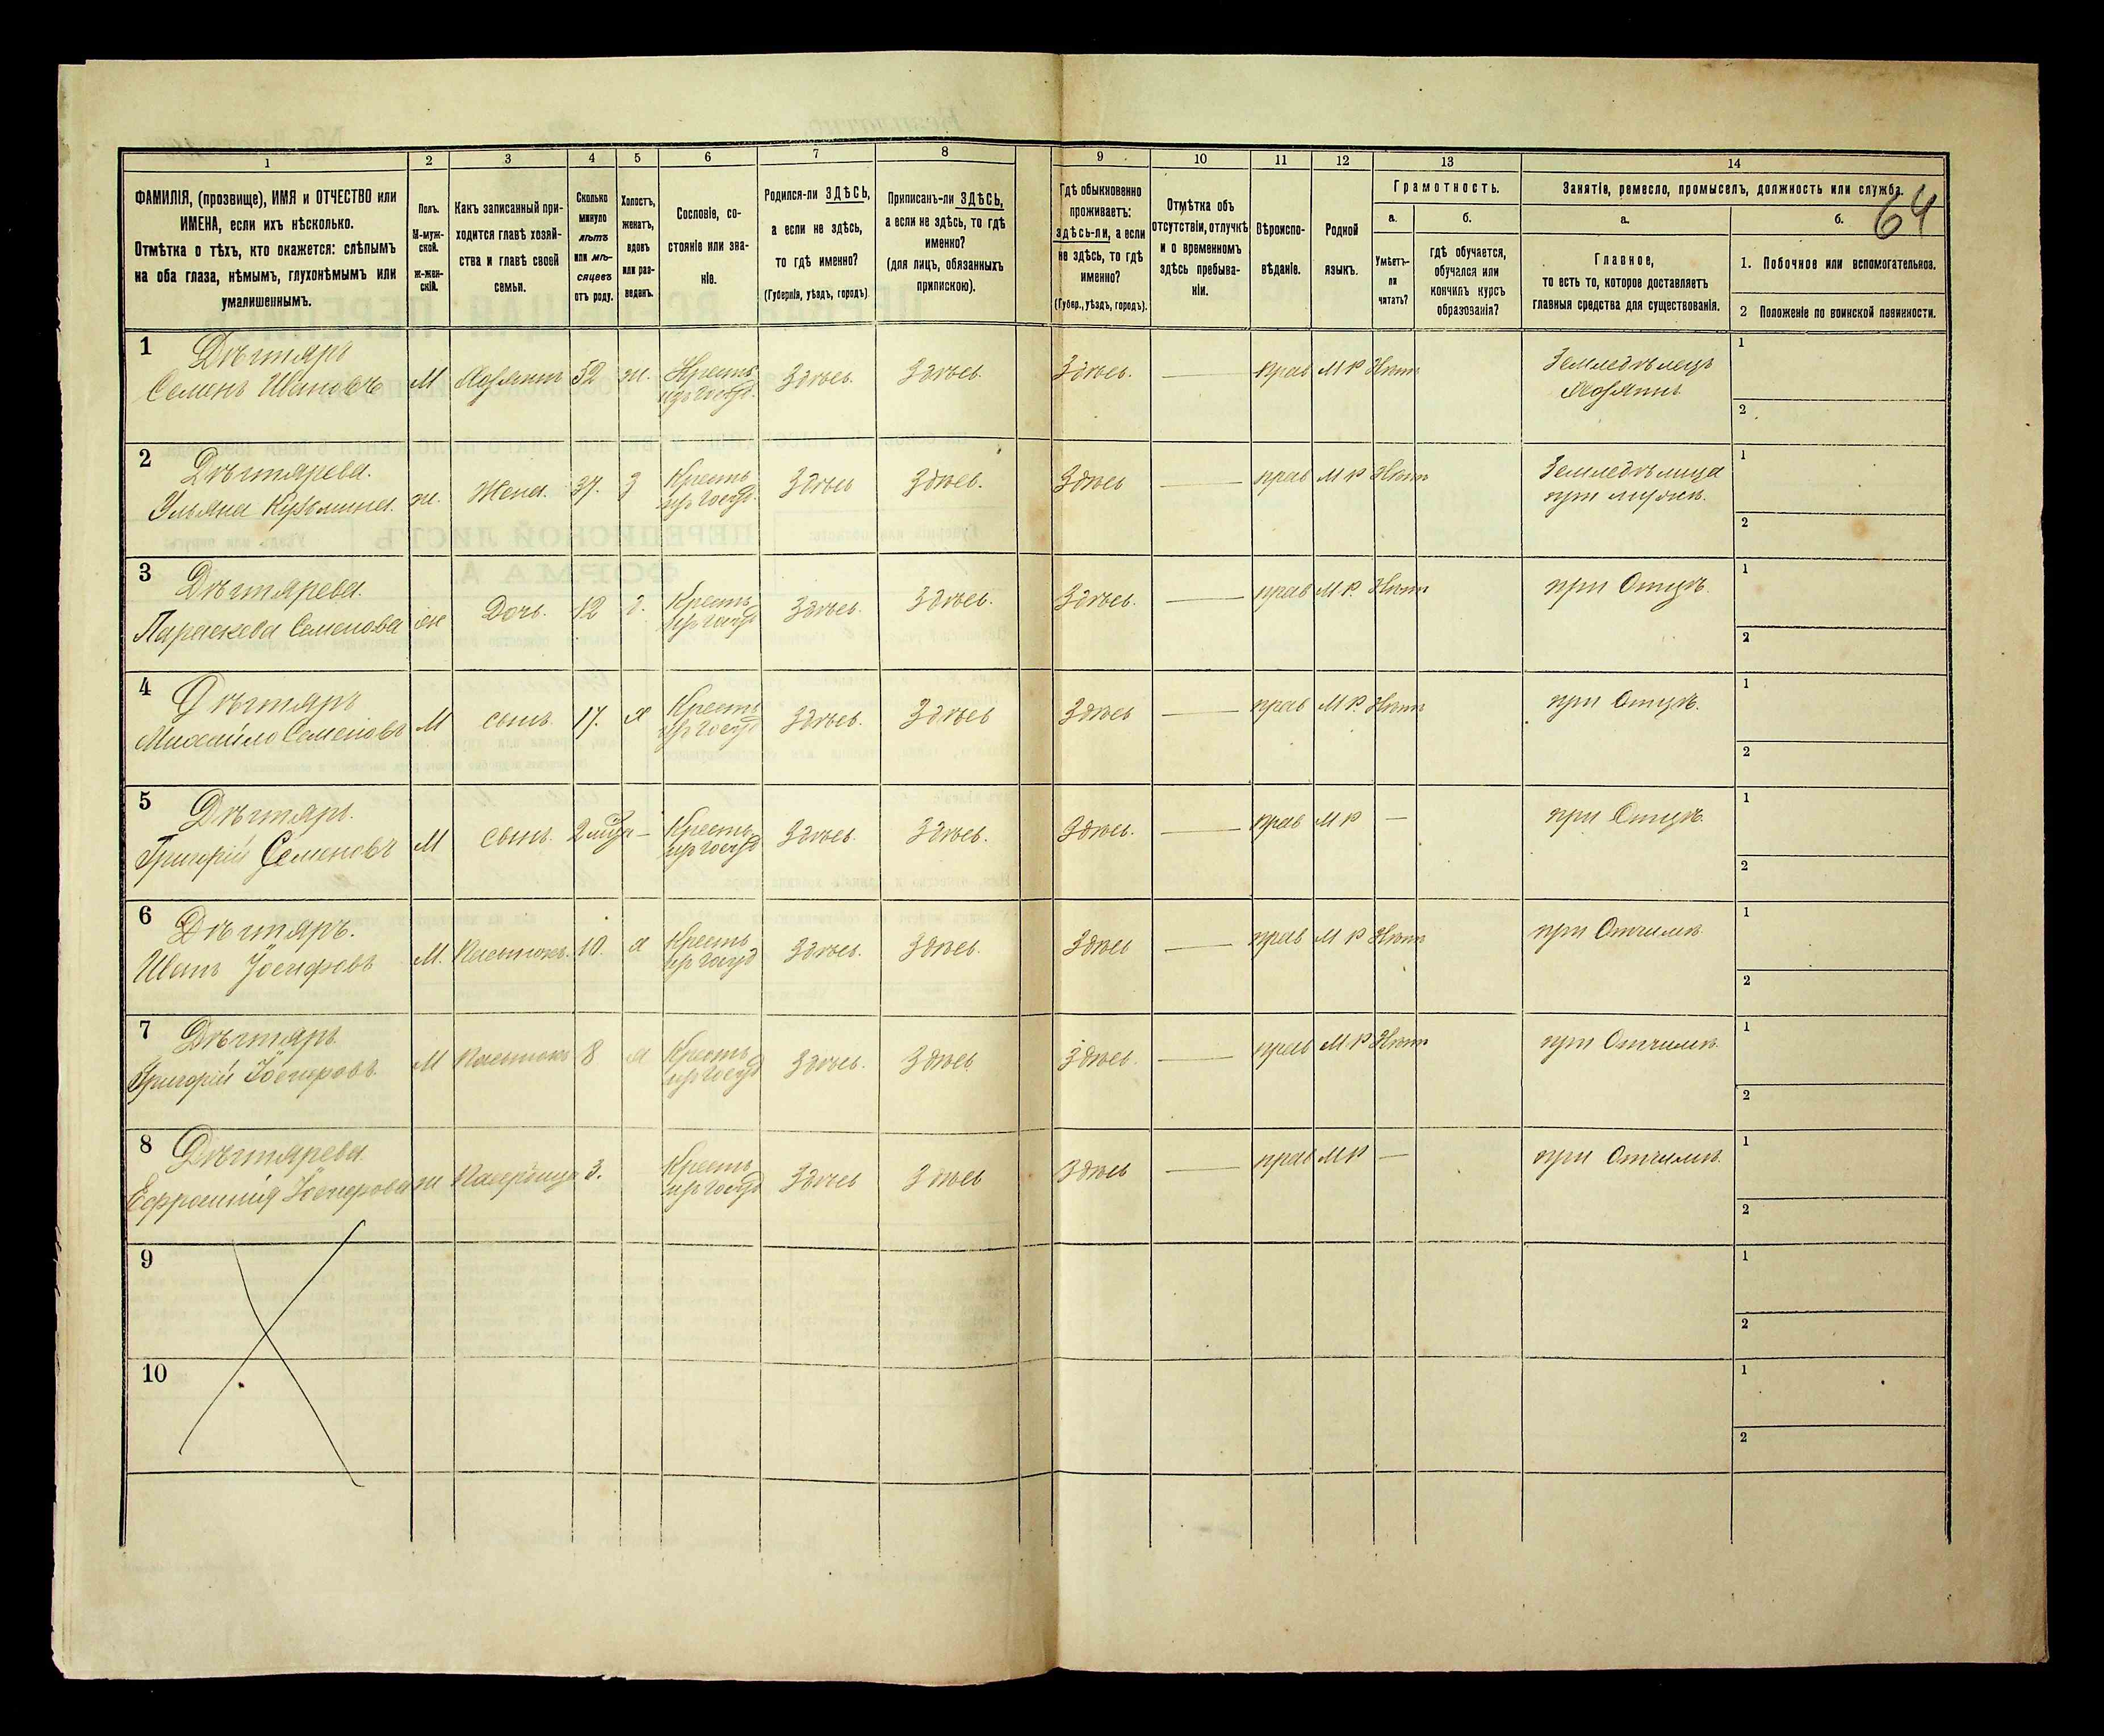 64
1 2 3 4 5 6 7 8 9 10 11 12 13 14
ФАМИЛІЯ, (прозвище), ИМЯ и ОТЧЕСТВО или
ИМЕНА, если ихъ нѣсколько.
Отмѣтка о тѣхъ, кто окажется: слѣпымъ
на оба глаза, нѣмымъ, глухонѣмымъ или
умалишеннымъ.
Полъ.
М-муж-
ской.
ж-жен-
скій.
Какъ записанный при-
ходится главѣ хозяй-
ства и главѣ своей
семьи.
Сколько
минуло
лѣтъ
или мѣ-
сяцевъ
отъ роду.
Холостъ,
женатъ,
вдовъ
или раз-
веденъ.
Сословіе, со-
стояніе или зва-
ніе.
Родился-ли ЗДѢСЬ,
а если не здѣсь,
то гдѣ именно?
(Губернія, уѣздъ, городъ)
Приписанъ-ли ЗДѢСЬ,
а если не здѣсь, то гдѣ
именно?
(для лицъ, обязанныхъ
припискою).
Гдѣ обыкновенно
проживаетъ:
здѣсь-ли, а если
не здѣсь, то гдѣ
именно?
(Губер., уѣздъ, городъ).
Отмѣтка объ
отсутствіи, отлучкѣ
и о временномъ
здѣсь пребыва-
ніи.
Вѣроиспо-
вѣданіе.
Родной
языкъ.
Грамотность.
а.
Умѣетъ-
ли
читать?
б.
гдѣ обучается,
обучался или
кончилъ курсъ
образованія?
Занятіе, ремесло, промыселъ, должность или служба.
а.
Главное,
то есть то, которое доставляетъ
главныя средства для существованія.
б.
1. Побочное или вспомогательное.
2 Положеніе по воинской повинности.
1 Дѣгтярь
Семенъ Ивановъ М Хозяинъ 52 ж. Крестъ
изъ госуд. Здѣсь. Здѣсь. Здѣсь. — прав М Р Нѣтъ Земледѣлецъ
Хозяинъ
1
2
2 Дѣгтярева.
Ульяна Кузьмина. ж. Жена. 37. З Крестъ
изъ госуд. Здѣсь Здѣсь. Здѣсь — прав М Р Нѣтъ Земледѣлица
при мужѣ.
1
2
3 Дѣгтярева.
Параскева Семенова ж Дочь. 12 Крестъ
изъ госуд Здѣсь. Здѣсь. Здѣсь. — прав М Р. Нѣтъ при Отцѣ.
1
2
4 Дѣгтярь
Михайло Семеновъ М сынъ. 17. Х Крестъ
изъ госуд Здѣсь. Здѣсь Здѣсь — прав М Р. Нѣтъ при Отцѣ.
1
2
5 Дѣгтярь.
Григорій Семеновъ М сынъ. — Крестъ
изъ госуд Здѣсь Здѣсь. Здѣсь. — прав М Р — при Отцѣ.
1
2
6 Дѣгтярь.
Иванъ Іосифовъ М. Пасынокъ. 10. Х Крестъ
изъ госуд Здѣсь. Здѣсь. Здѣсь — прав М Р Нѣтъ при Отчимѣ
1
2
7 Дѣгтярь
Григорій Іосифовъ М Пасынокъ 8 Х Крестъ
изъ госуд Здѣсь. Здѣсь Здѣсь. — прав М Р Нѣтъ при Отчимѣ.
1
2
8 Дѣгтярева
Ефросинія Іосифова ж Падчерица 3. Крестъ
изъ госуд Здѣсь Здѣсь Здѣсь — прав М Р — при Отчимѣ.
1
2
9
1
2
10
1
2